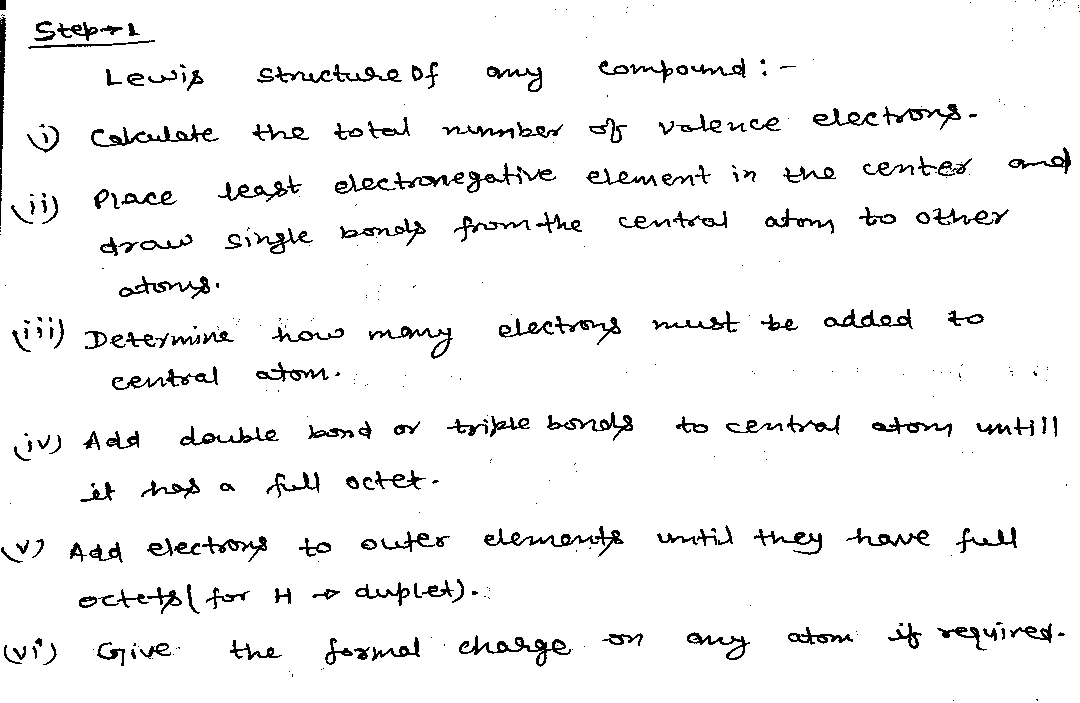 Step→1
Lewis structure of any compound :-
(i) Calculate the total number of valence electrons.
(ii) Place least electronegative element in the center and
draw single bonds from the central atom to other
atoms.
(iii) Determine how many electrons must be added to
central atom.
(iv) Add double bond or triple bonds to central atom untill
it has a full octet.
(v) Add electrons to outer elements until they have full
octets (for H → duplet).
(vi) Give the formal charge on any atom if required.